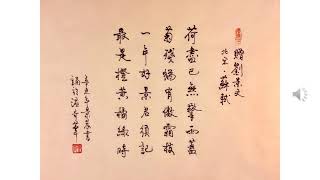 贈劉景文
北宋·蘇軾
荷盡已無擎雨蓋
菊殘猶有傲霜枝
一年好景君須記
最是橙黃橘綠時